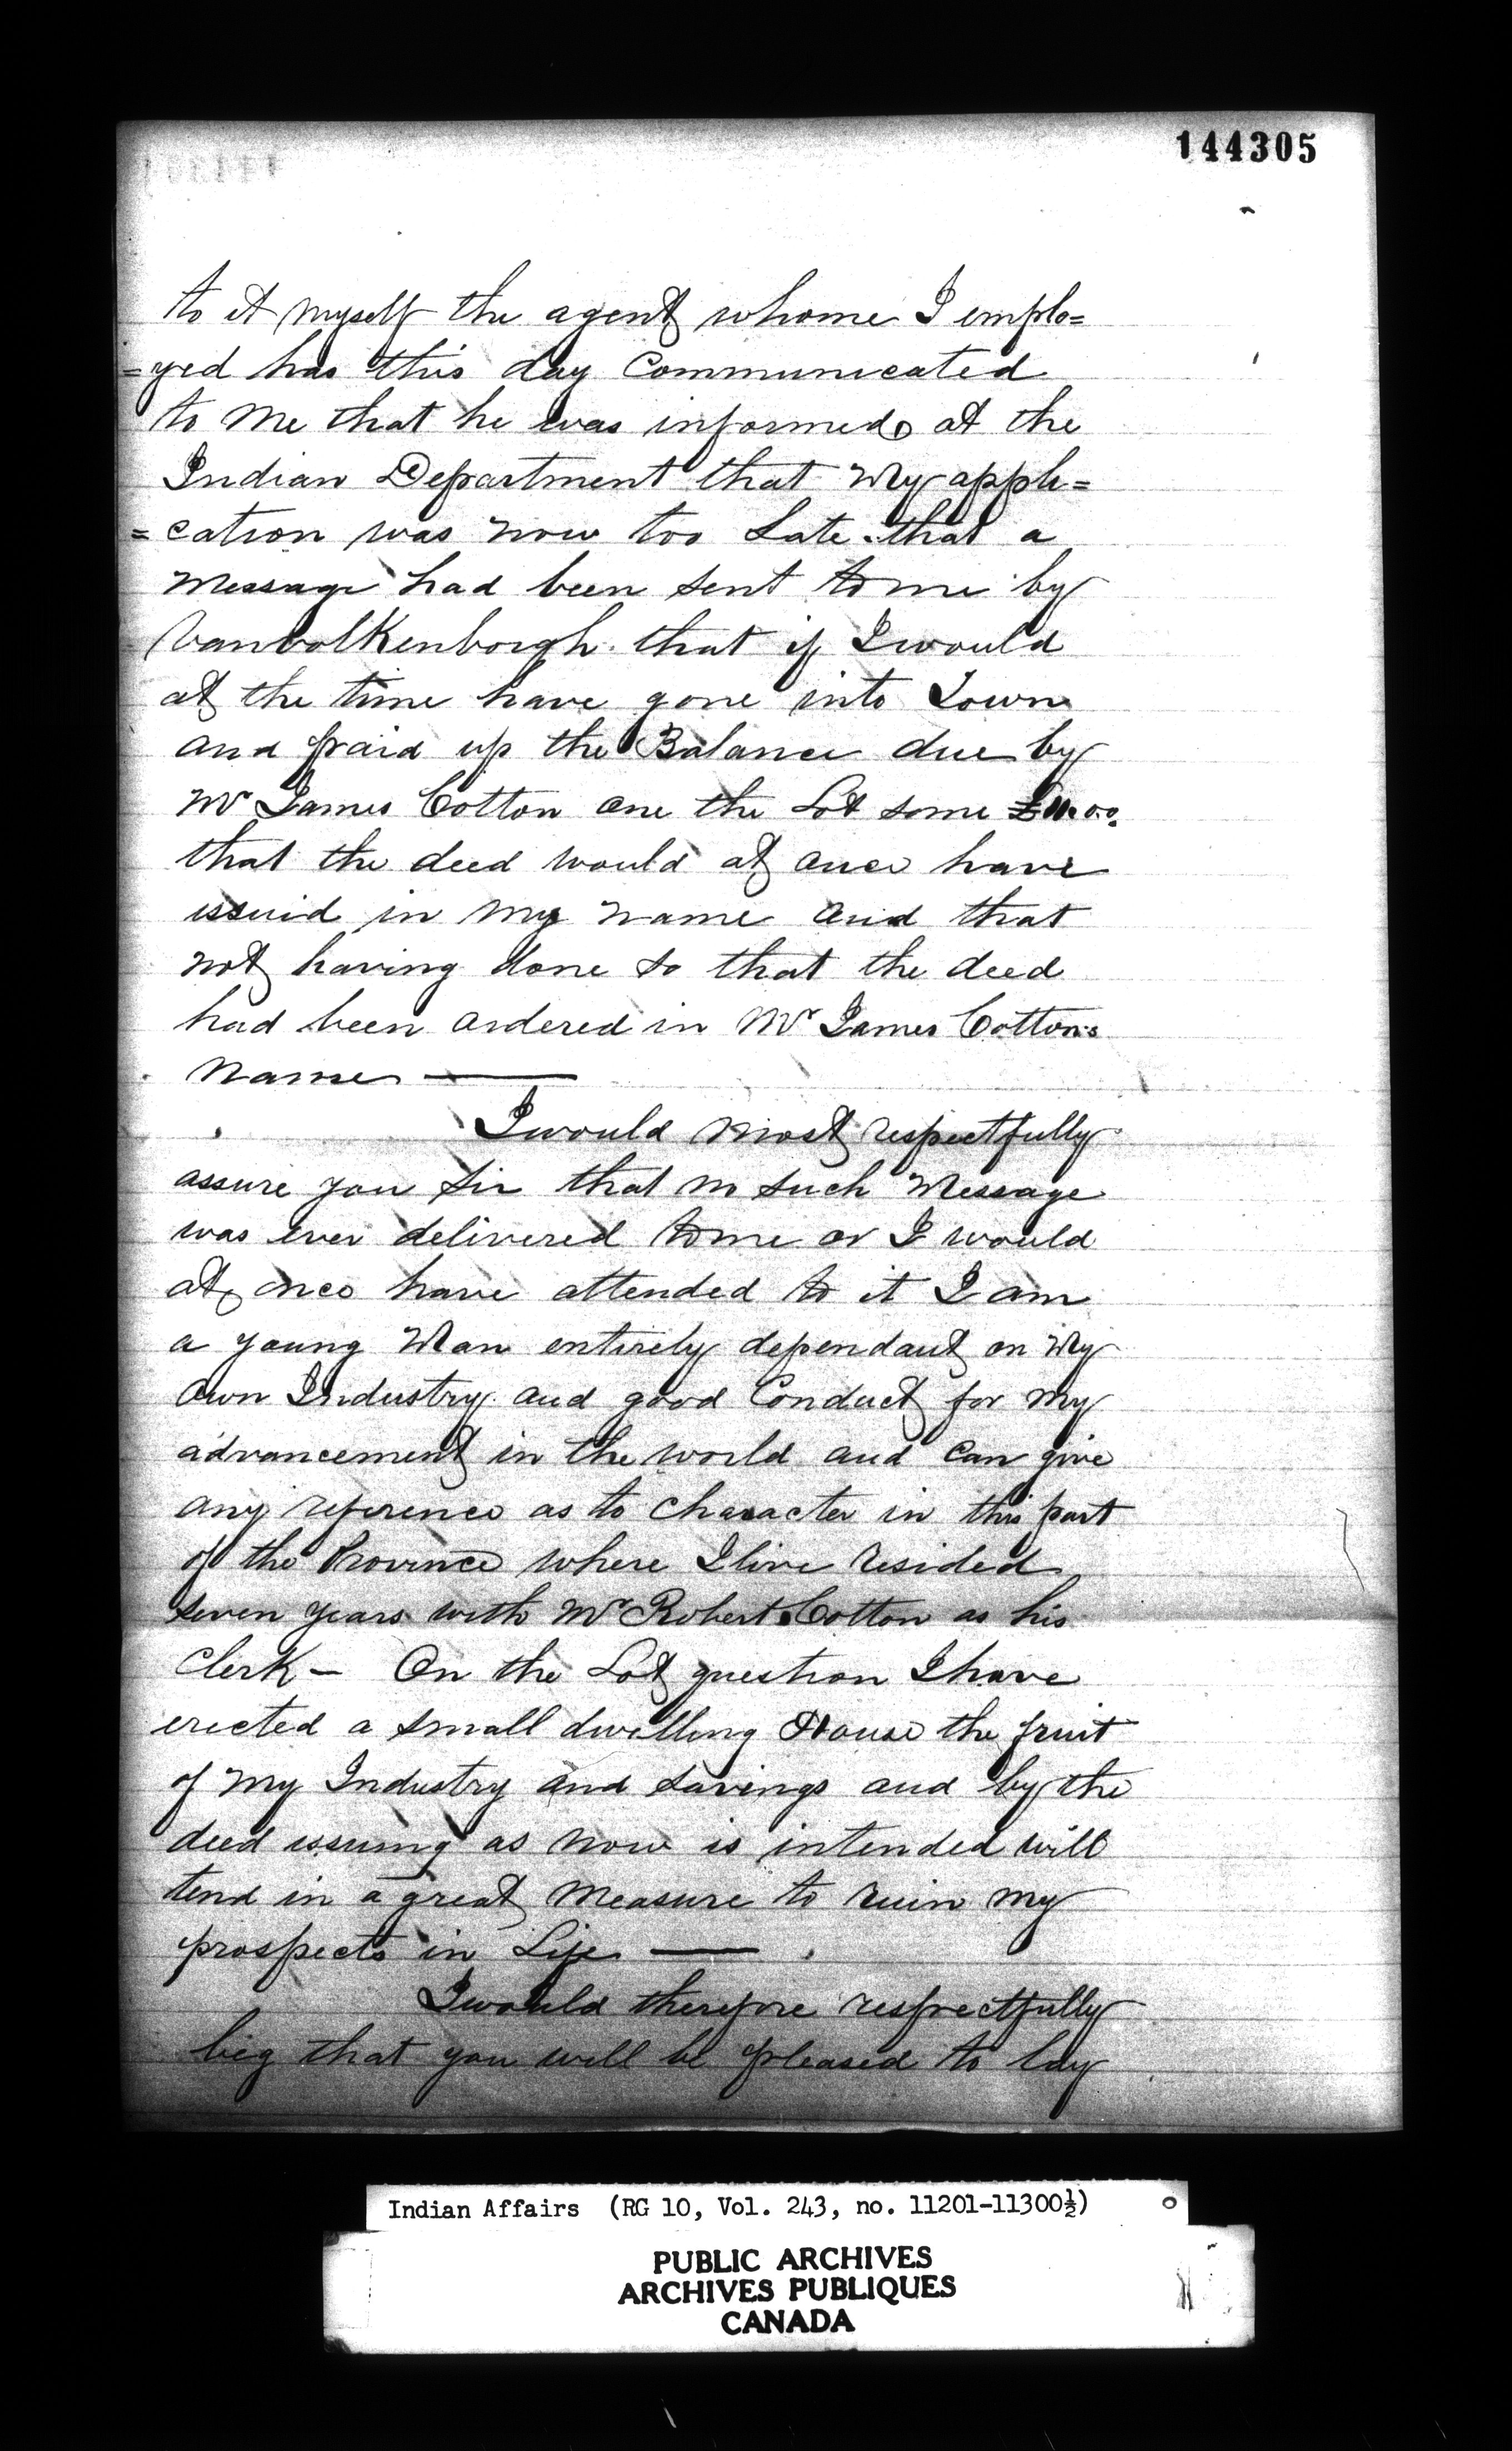 144305
to it myself the agent whome I emplo=
=yed has this day Communicated
to me that he was informed at the
Indian Department that My appli=
=cation was now too Late. that a
Message had been sent to me by
Vanvolkenborgh. that if I would
at the time have gone into Town
and paid up the Balance due by
Mr James Cotton one the Lot some
that the deed would at once have
issuid in my name and that
not having done so that the deed
had been ordered in Mr James Cottons
Name —
I would most respectfully
assure you Sir that no such Message
was ever delivered to me or I would
at once have attended to it I am
a young Man entirely dependant on My
own Industry and good Conduct for my
advancement in the world and Can give
any reference as to Character in this part
of the Province where I live resided
seven years with Mr Robert Cotton as his
Clerk — On the Lot question I have
erected a small dwelling House the fruit
of my Industry and savings and by the
deed issuing as now is intended will
tend in a great Measure to ruin my
prospects in Life —
I would therefore respectfully
beg that you will be pleased to lay
Indian Affairs (RG 10, Vol. 243, no. 11201-11300½)
PUBLIC ARCHIVES
ARCHIVES PUBLIQUES
CANADA